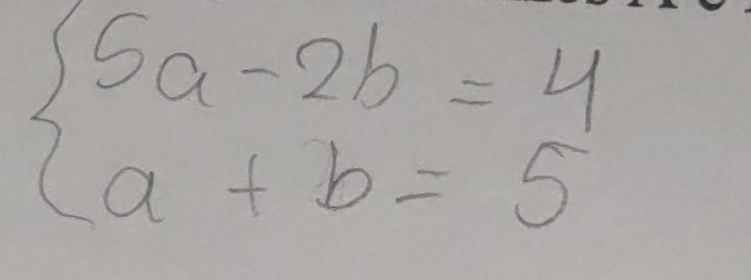 5a - 2b = 4
a + b = 5